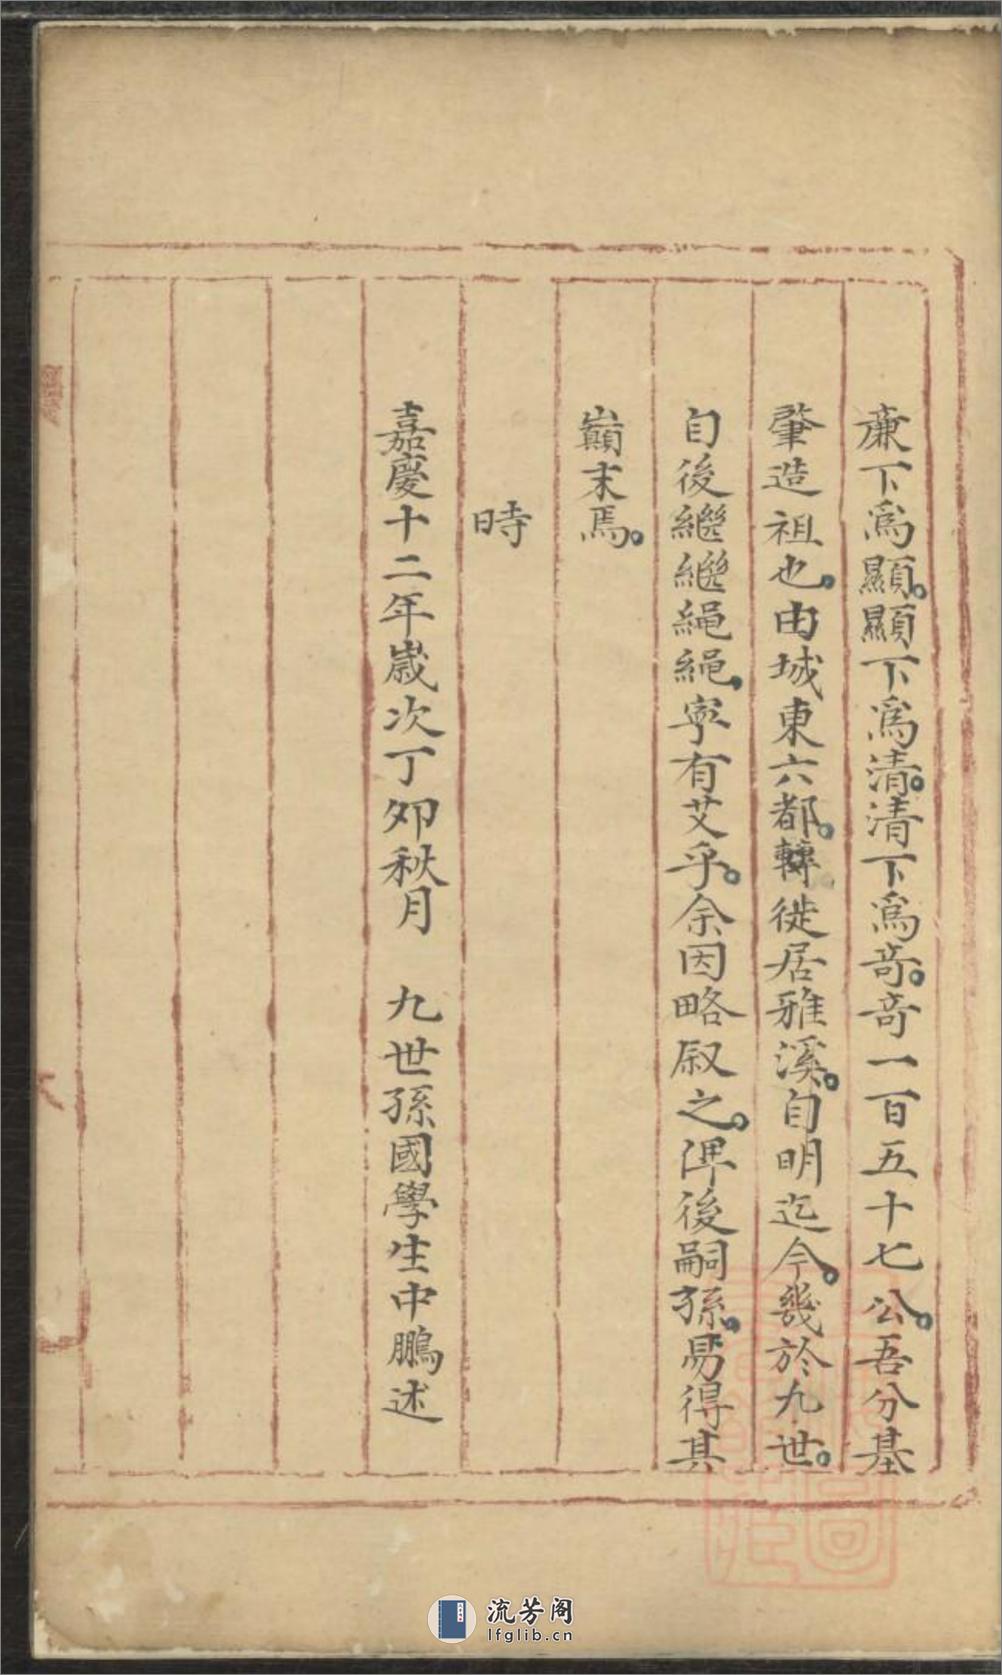 廉下為顯。顯下為清。清下為竒。竒一百五十七公。吾分基
肇造祖也。由城東六都。轉徙居雅溪。自明迄今。幾於九世。
自後繼繼繩繩。寧有艾乎。余因略叙之。俾後嗣孫。易得其
巔末焉。
時
嘉慶十二年歲次丁夘秋月　九世孫國學生中鵬述
流芳阁
lfglib.cn